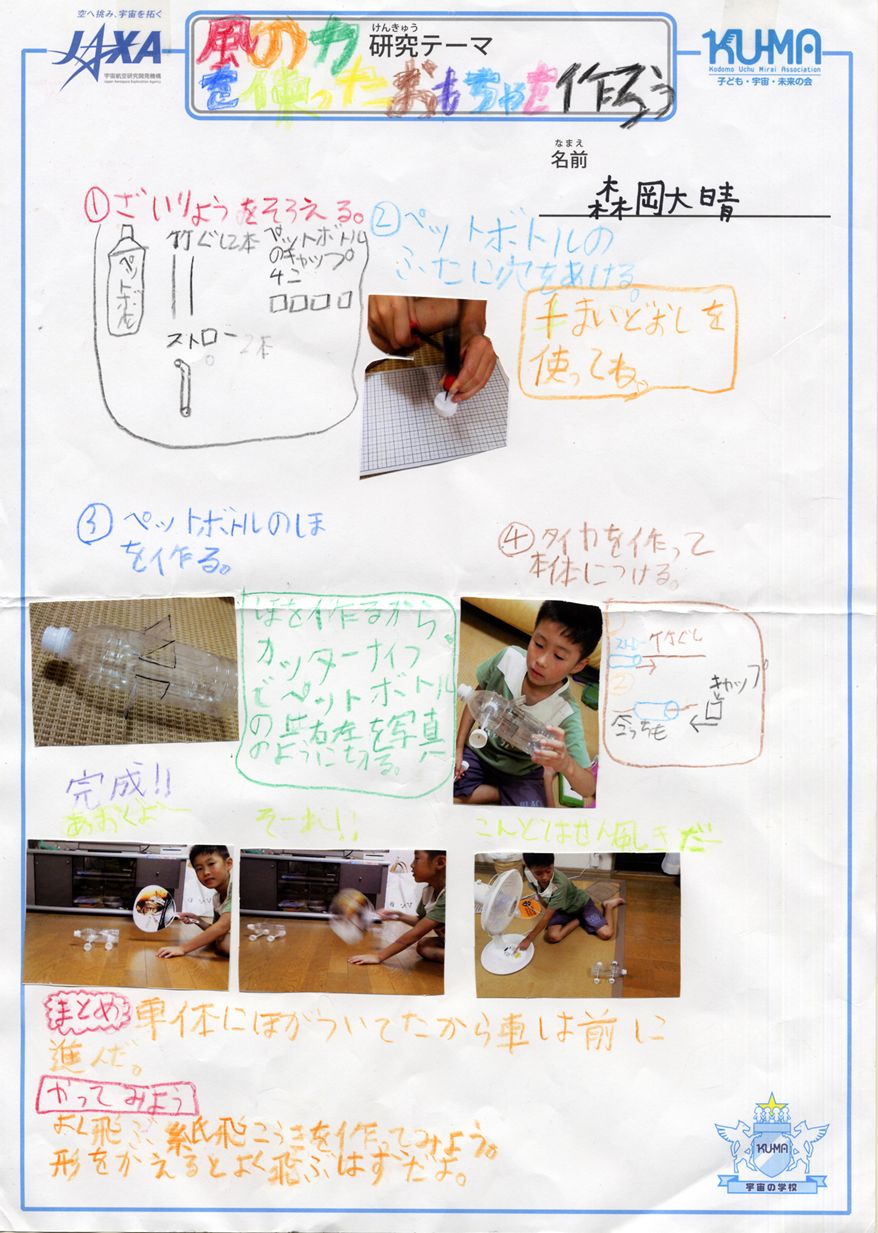 空へ挑み、宇宙を拓く
JAXA
宇宙航空研究開発機構
Japan Aerospace Exploration Agency
けんきゅう
研究テーマ
風の力
を使ったおもちゃを作ろう
KU-MA
Kodomo Uchu Mirai Association
子ども・宇宙・未来の会
なまえ
名前
森岡大晴
①ざいりょうをそろえる。
ペットボトル
竹ぐし2本
ペットボトル
のキャップ
4こ
ストロー 2本
②ペットボトルの
ふたに穴をあける。
千まいどおしを
使ってね。
③ペットボトルのほ
を作る。
ほを作るから、
カッターナイフ
でペットボトル
の上右左を写真
のように切る。
④タイヤを作って
本体につける。
①
ストロー 竹ぐし
②
キャップ
こっちも
完成!!
あおぐよー
そーれ!!
こんどはせん風きだー
まとめ 車体にほがついてたから車は前に
進んだ。
やってみよう
よく飛ぶ紙飛こうきを作ってみよう。
形をかえるとよく飛ぶはずだよ。
KU-MA
宇宙の学校